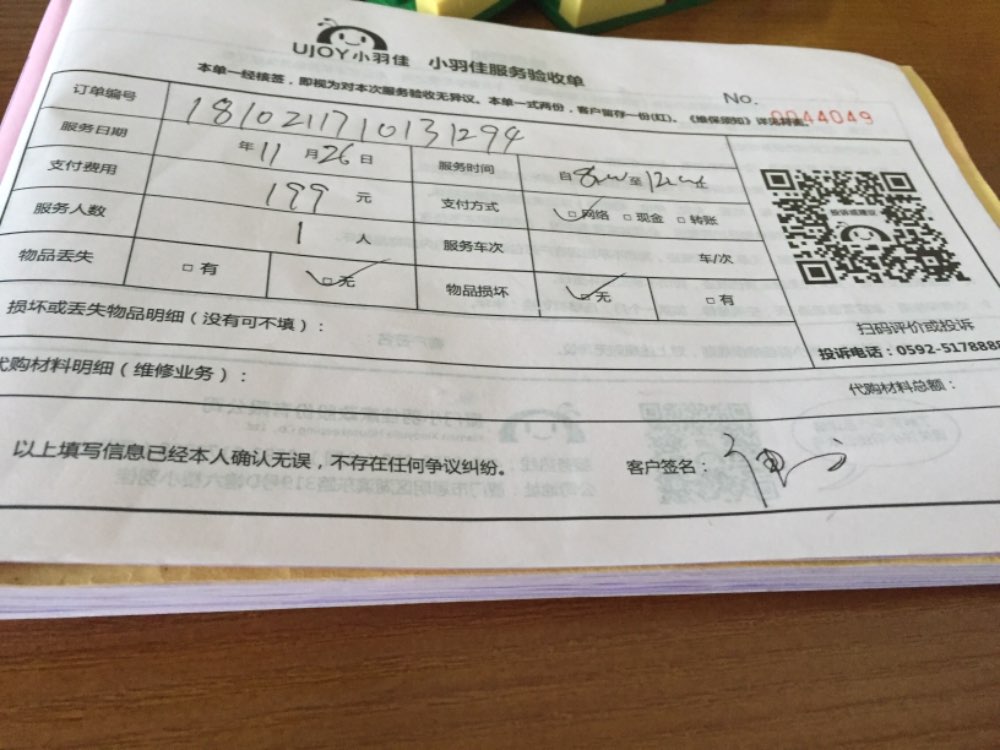 UJOY小羽佳 小羽佳服务验收单
No. 0044049
本单一经核签，即视为对本次服务验收无异议。本单一式两份，客户留存一份(红)。《维保须知》详见背面。
订单编号 1810211710131294
服务日期 年11月26日 服务时间 自8:00至12:00止
支付费用 199 元 支付方式 □网络 □现金 □转账
服务人数 1 人 服务车次 车/次
物品丢失 □有 □无 物品损坏 □无 □有
投诉或建议
扫码评价或投诉
损坏或丢失物品明细（没有可不填）：
投诉电话：0592-5178888
代购材料明细（维修业务）： 代购材料总额：
以上填写信息已经本人确认无误，不存在任何争议纠纷。 客户签名：